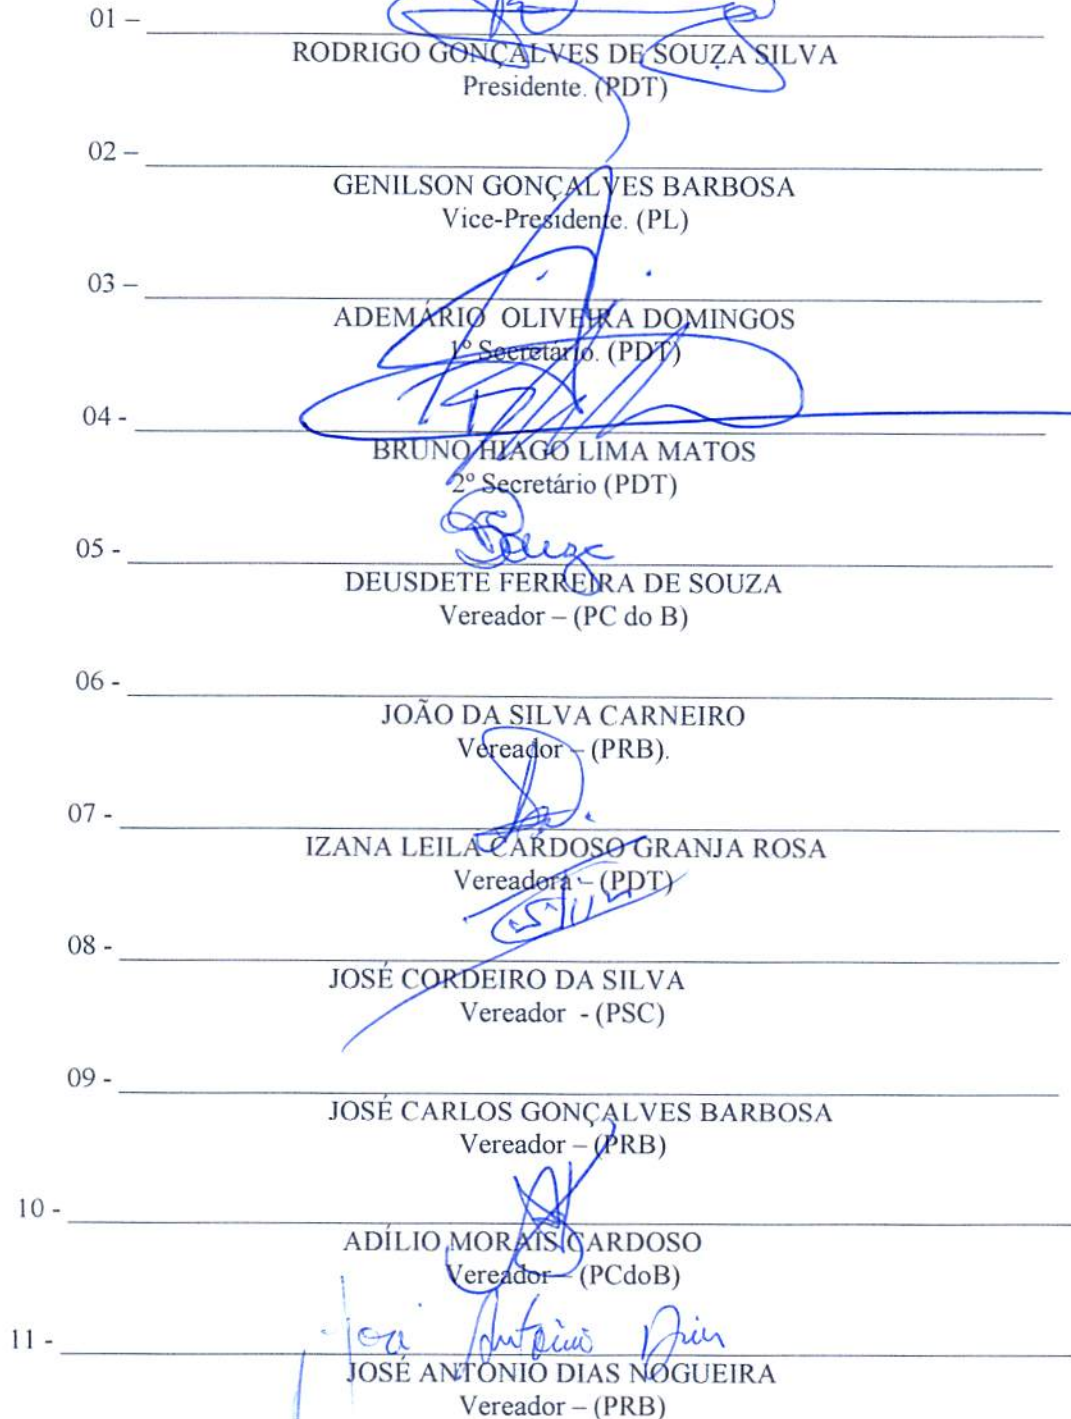 01 –
RODRIGO GONÇALVES DE SOUZA SILVA
Presidente. (PDT)
02 –
GENILSON GONÇALVES BARBOSA
Vice-Presidente. (PL)
03 –
ADEMÁRIO OLIVEIRA DOMINGOS
1º Secretário. (PDT)
04 -
BRUNO HIAGO LIMA MATOS
2º Secretário (PDT)
Souza
05 -
DEUSDETE FERREIRA DE SOUZA
Vereador – (PC do B)
06 -
JOÃO DA SILVA CARNEIRO
Vereador – (PRB).
07 -
IZANA LEILA CARDOSO GRANJA ROSA
Vereadora – (PDT)
08 -
JOSÉ CORDEIRO DA SILVA
Vereador - (PSC)
09 -
JOSÉ CARLOS GONÇALVES BARBOSA
Vereador – (PRB)
10 -
ADÍLIO MORAIS CARDOSO
Vereador – (PCdoB)
11 - José Antônio Dias
JOSÉ ANTÔNIO DIAS NOGUEIRA
Vereador – (PRB)